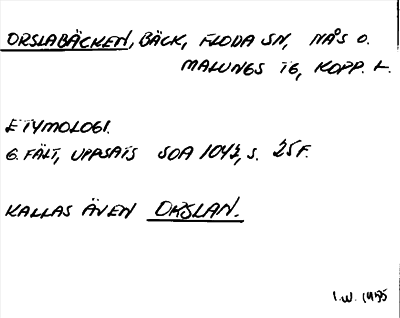 ORSLABÄCKEN, BÄCK, FLODA SN, NÅS O.
MALUNGS TG, KOPP. L.
ETYMOLOGI.
G. FÄLT, UPPSATS SOA 1043, S. 25 F.
KALLAS ÄVEN ORSLAN.
I.W.